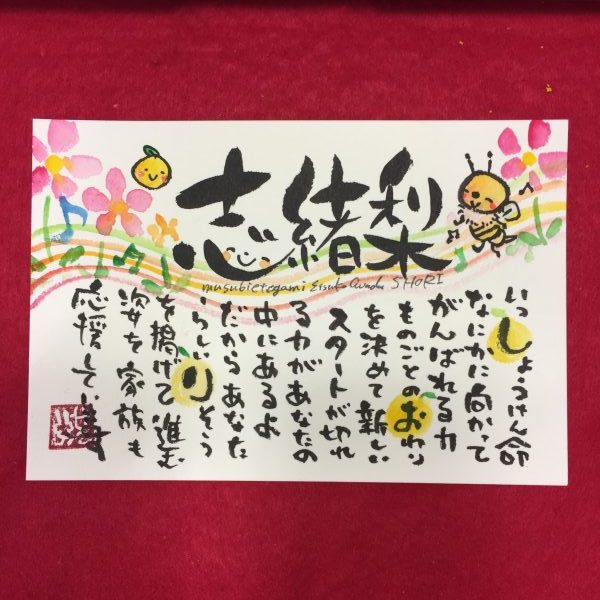 志緒梨
musubietegami Etsuko SHORI
いっしょうけん命
なにかに向かって
がんばれる力
ものごとのおわり
を決めて新しい
スタートが切れ
る力があなたの
中にあるよ
だからあなた
らしいりそう
を掲げて進む
姿を家族も
応援してい